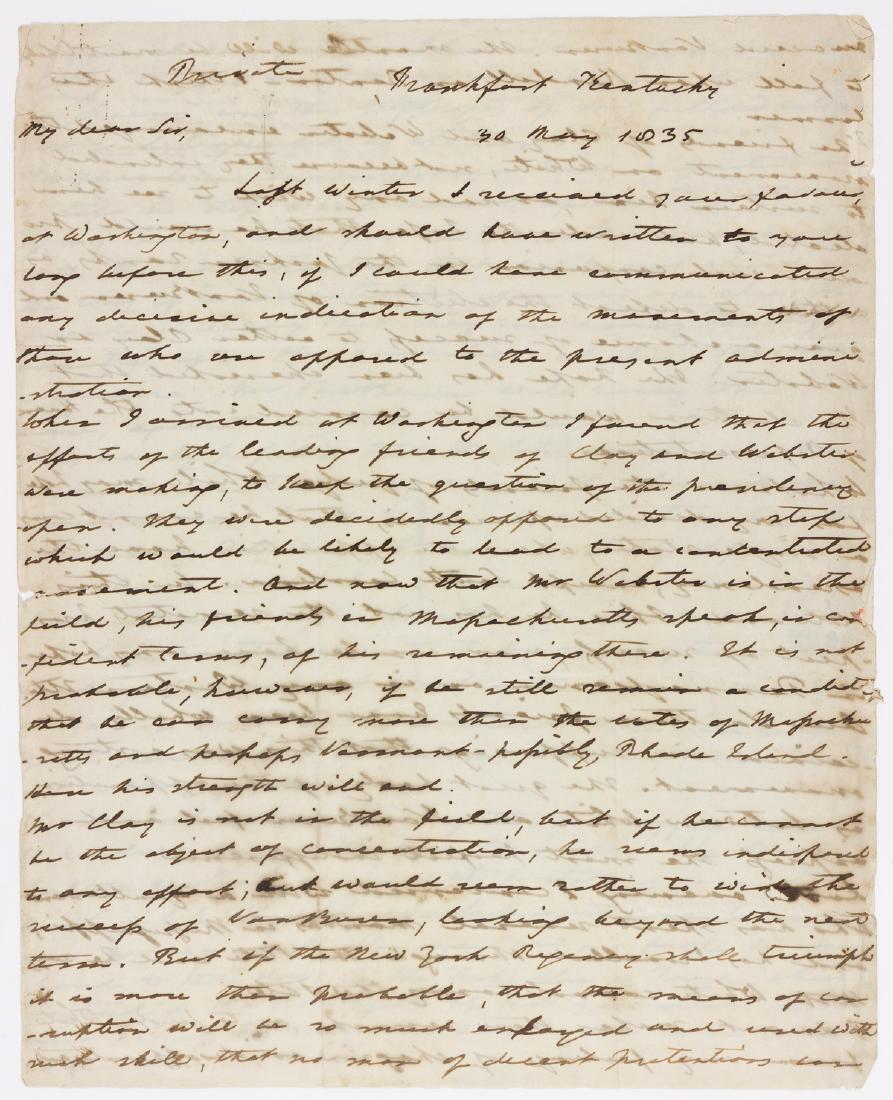 Private
Frankfort Kentucky
My dear Sir,
30 May 1835
Last winter I received your favour,
at Washington, and should have written to you
long before this, if I could have communicated
any decisive indication of the movements of
those who are opposed to the present admini
-stration.
When I arrived at Washington I found that the
efforts of the leading friends of Clay and Webster
were making, to keep the question of the presidency
open. They were decidedly opposed to any step
which would be likely to lead to a concentrated
movement. And now that Mr Webster is in the
field, his friends in Massachusetts speak, in con
-fident terms, of his remaining there. It is not
probable, however, if he still remain a candidate
that he can carry more than the votes of Massachu
-setts and perhaps Vermont - possibly, Rhode Island.
Here his strength will end.
Mr Clay is not in the field, but if he cannot
be the object of concentration, he seems indisposed
to any effort; but would seem rather to wish the
success of VanBuren, looking beyond the next
term. But if the New York Regency shall triumph
it is more than probable, that the means of cor
-ruption will be so much enlarged and used with
such skill, that no man of decent pretentions can